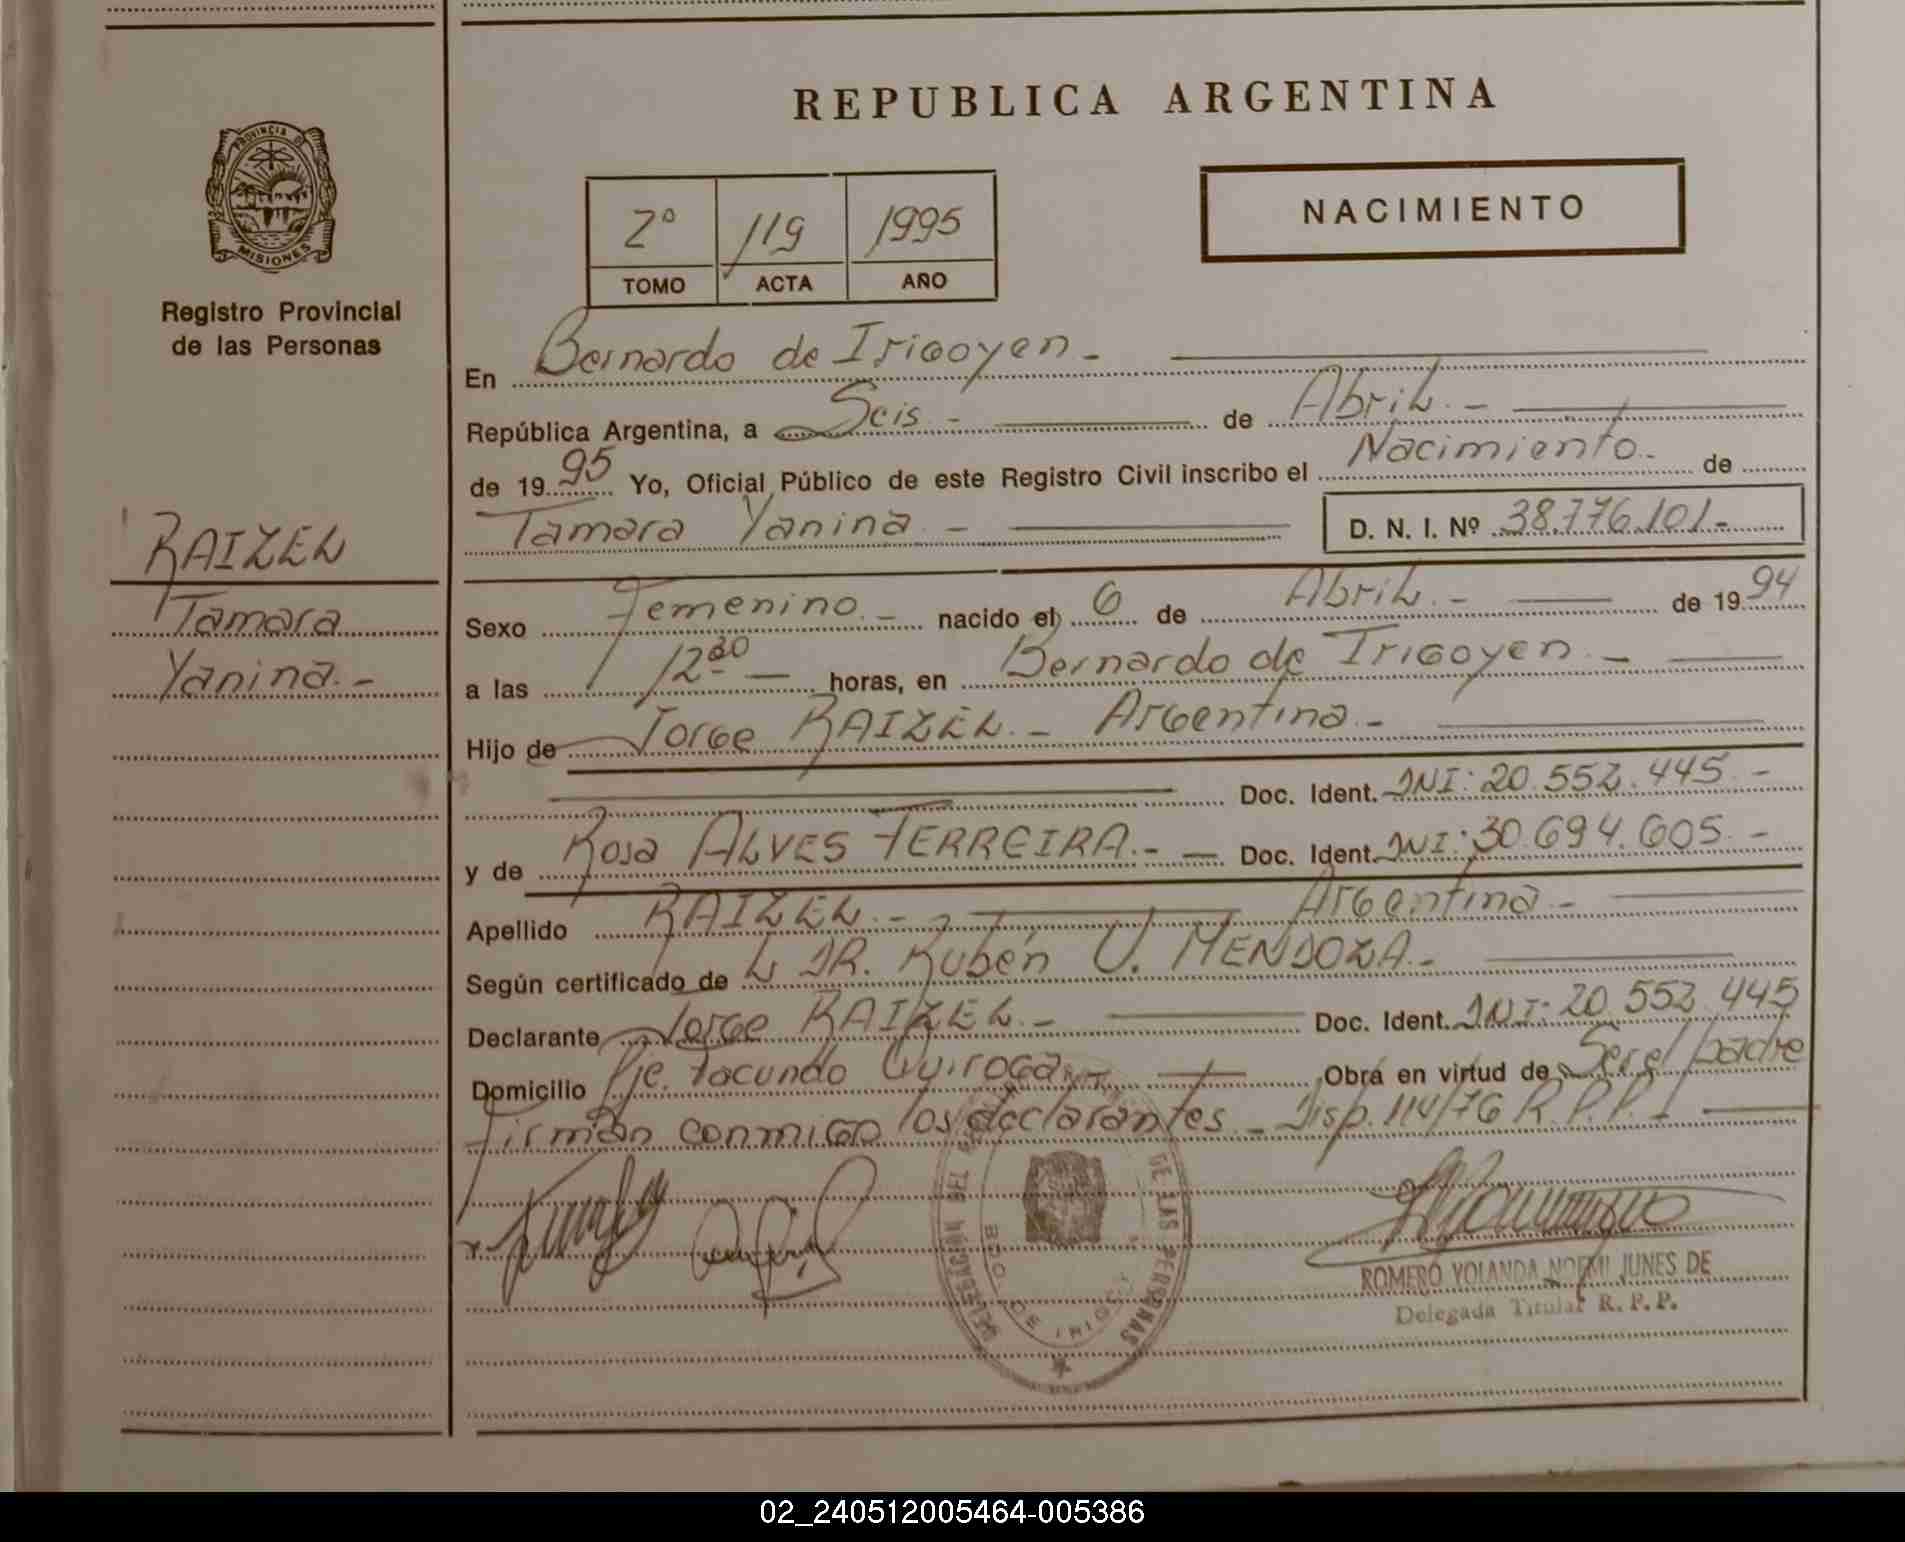 REPUBLICA ARGENTINA
PROVINCIA D
MISIONES
Registro Provincial
de las Personas
2º 119 1995
TOMO ACTA AÑO
NACIMIENTO
En Bernardo de Irigoyen.-
República Argentina, a Seis.- de Abril.-
de 1995 Yo, Oficial Público de este Registro Civil inscribo el Nacimiento.- de
Tamara Yanina.- D. N. I. Nº 38.776.101.-
RAIZEL
Tamara
Yanina.-
Sexo Femenino.- nacido el 6 de Abril.- de 1994
a las 12 30 horas, en Bernardo de Irigoyen.-
Hijo de Jorge RAIZEL.- Argentina.-
Doc. Ident. DNI: 20.552.445.-
y de Rosa ALVES FERREIRA.- Doc. Ident. DNI: 30.694.605.-
Apellido RAIZEL.- Argentina.-
Según certificado de L DR. Rubén U. MENDOZA.-
Declarante Jorge RAIZEL.- Doc. Ident. DNI: 20.552.445
Domicilio Pje. Facundo Quiroga.- Obra en virtud de Ser el padre
Firman conmigo los declarantes.- Disp. 114/76 R.P.P.-
DE LAS PERSONAS
BDO. DE IRIGOY
ROMERO YOLANDA NOEMI JUNES DE
Delegada Titular R. P. P.
02_240512005464-005386